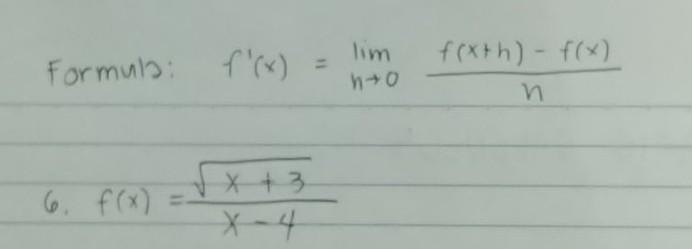 Formula: f'(x) = lim h→0 f(x+h) - f(x) / h
6. f(x) = √x + 3 / x - 4